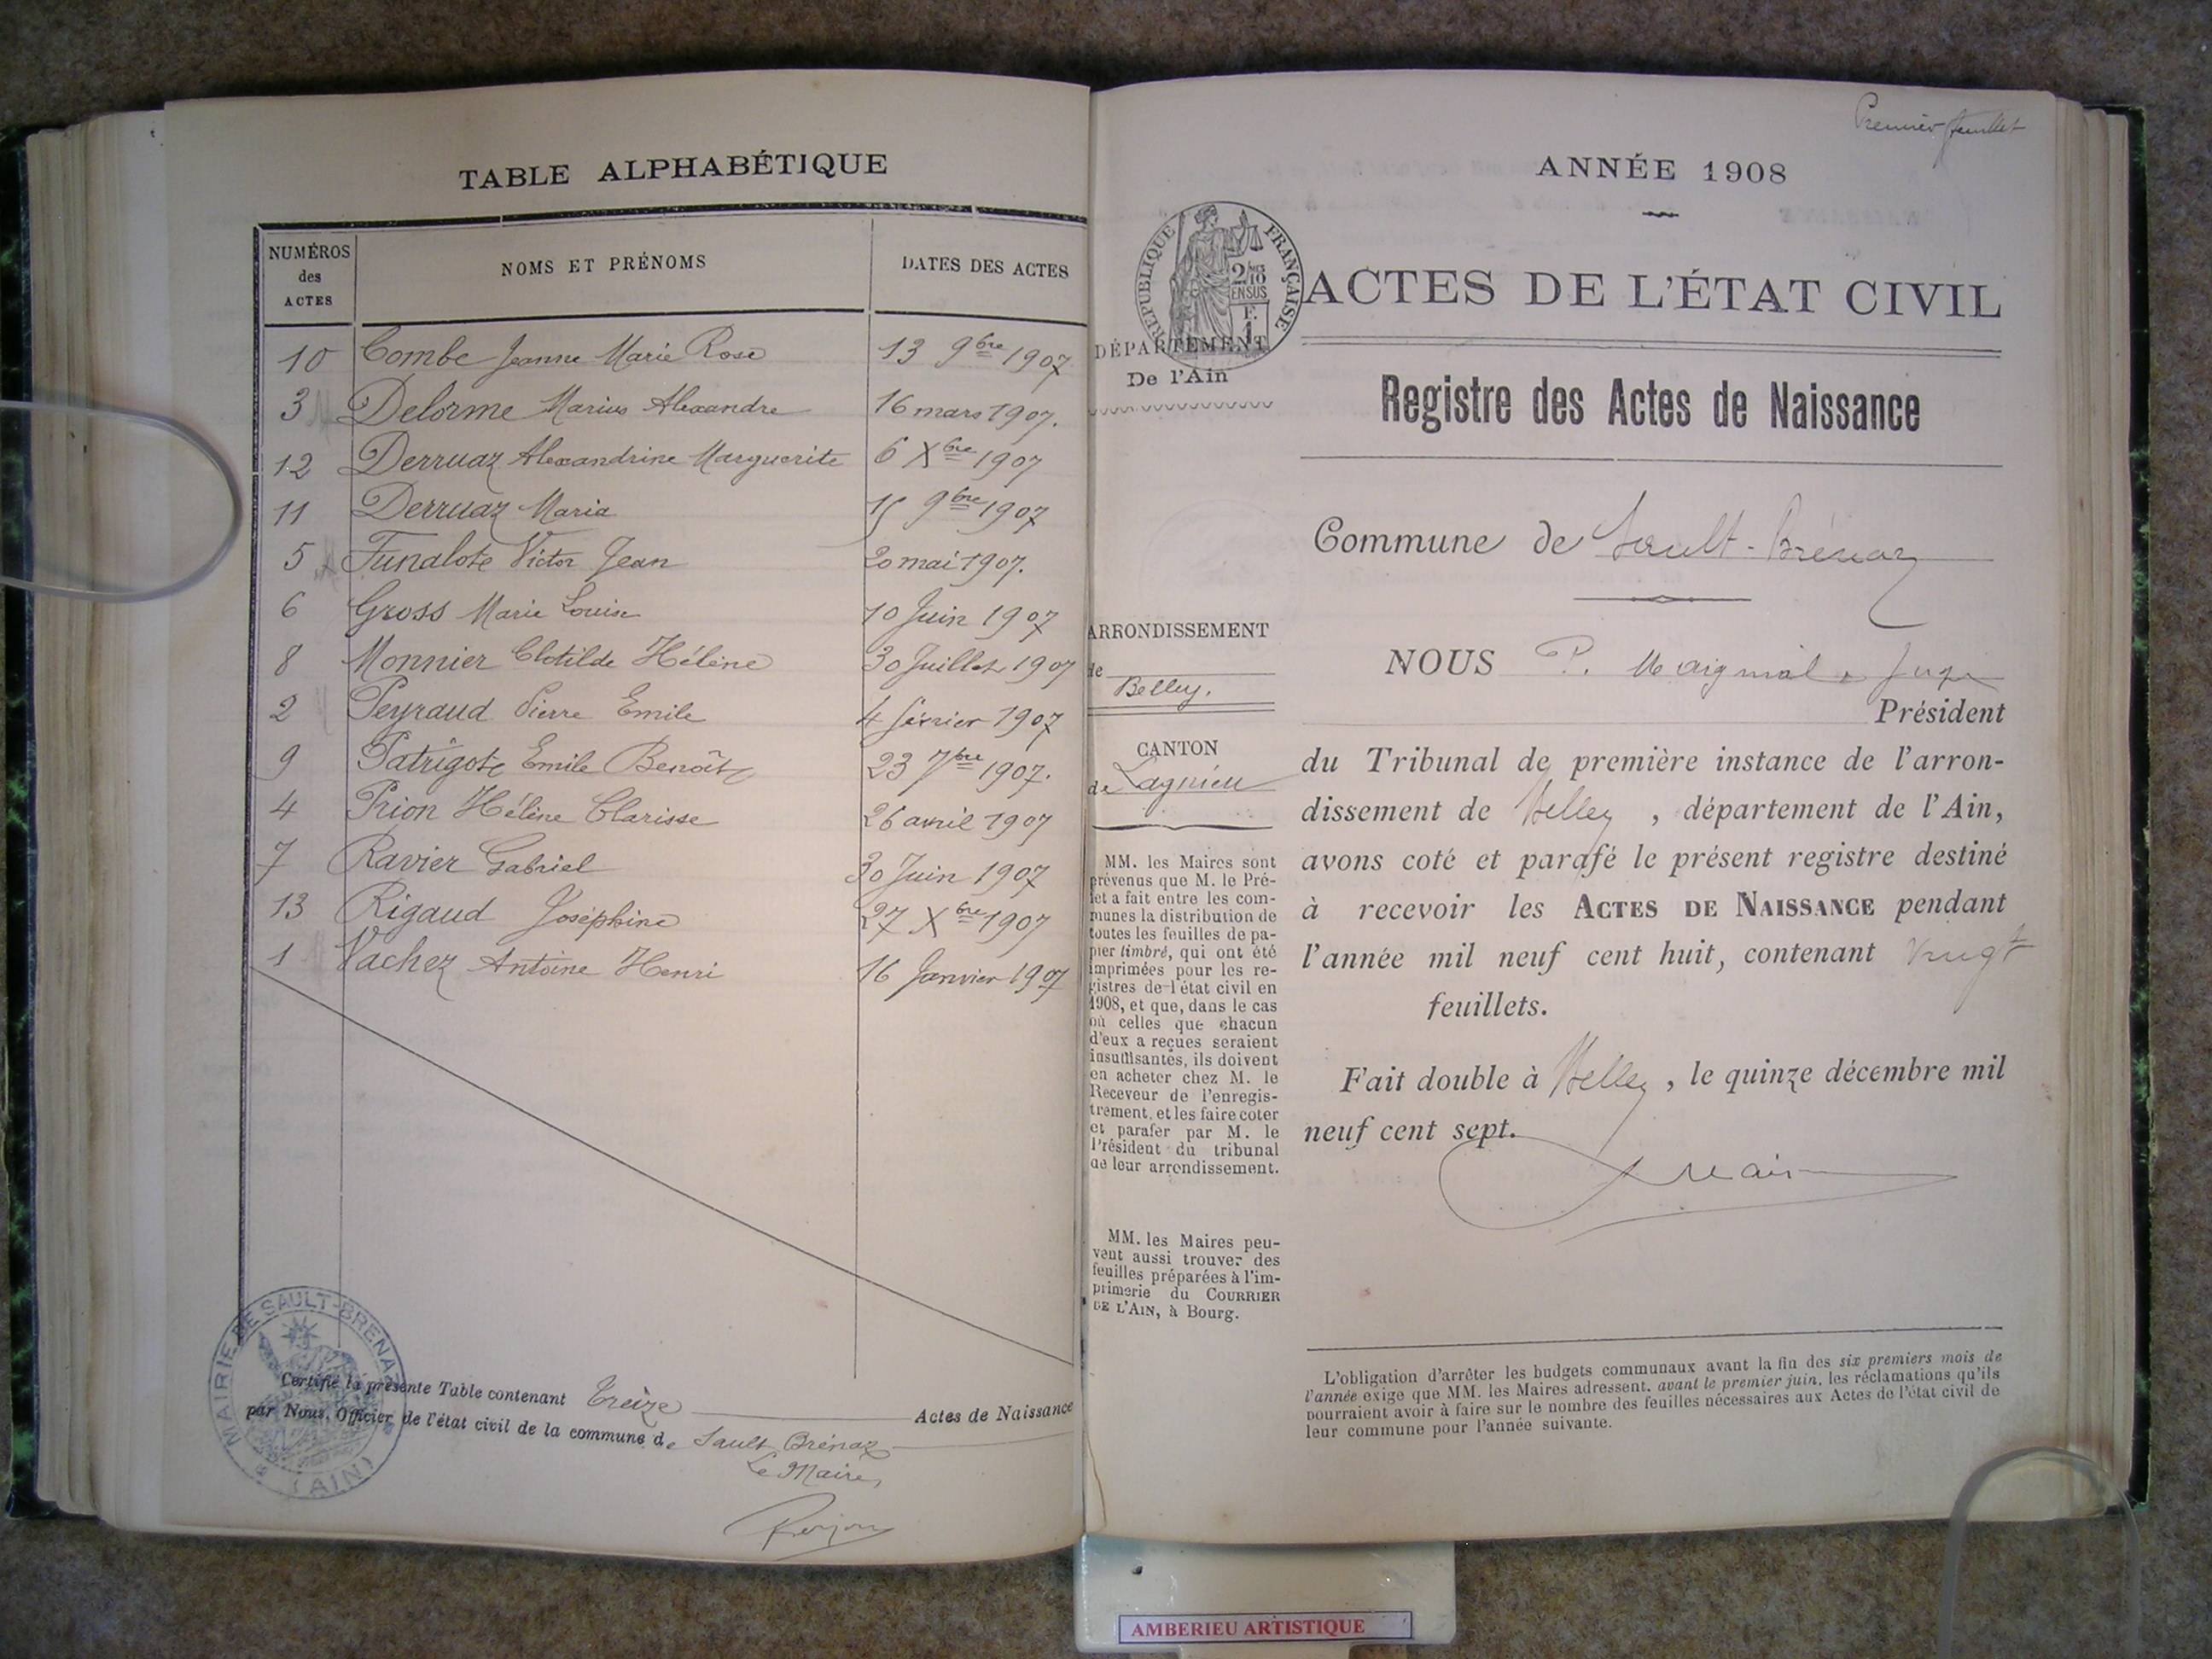 TABLE ALPHABÉTIQUE
NUMÉROS des ACTES
NOMS ET PRÉNOMS
DATES DES ACTES
10 Combe Jeanne Marie Rose 13 9bre 1907
3 Delorme Marius Alexandre 16 mars 1907.
12 Derruaz Alexandrine Marguerite 6 Xbre 1907
11 Derruaz Maria 15 9bre 1907
5 Funalote Victor Jean 20 mai 1907.
6 Gross Marie Louise 10 Juin 1907
8 Monnier Clotilde Hélène 30 Juillet 1907
2 Peyraud Pierre Emile 4 février 1907
9 Patrigote Emile Benoît 23 7bre 1907.
4 Prion Hélène Clarisse 26 avril 1907
7 Ravier Gabriel 30 Juin 1907
13 Rigaud Joséphine 27 Xbre 1907
1 Vachez Antoine Henri 16 Janvier 1907
MAIRIE DE SAULT-BRENAZ
(AIN)
Certifié la présente Table contenant treize Actes de Naissance
par Nous, Officier de l'état civil de la commune de Sault Brénaz
Le Maire,
Premier feuillet
ANNÉE 1908
REPUBLIQUE FRANÇAISE
2/10
EN SUS
F.
1
ACTES DE L'ÉTAT CIVIL
DÉPARTEMENT
De l'Ain
Registre des Actes de Naissance
Commune de Sault-Brénaz
ARRONDISSEMENT
de
Belley.
CANTON
de Lagnieu
MM. les Maires sont
prévenus que M. le Pré-
fet a fait entre les com-
munes la distribution de
toutes les feuilles de pa-
pier timbré, qui ont été
imprimées pour les re-
gistres de l'état civil en
1908, et que, dans le cas
où celles que chacun
d'eux a reçues seraient
insuffisantes, ils doivent
en acheter chez M. le
Receveur de l'enregis-
trement, et les faire coter
et parafer par M. le
Président du tribunal
de leur arrondissement.
MM. les Maires peu-
vent aussi trouver des
feuilles préparées à l'im-
primerie du COURRIER
DE L'AIN, à Bourg.
NOUS P. Juge
Président
du Tribunal de première instance de l'arron-
dissement de Belley, département de l'Ain,
avons coté et parafé le présent registre destiné
à recevoir les ACTES DE NAISSANCE pendant
l'année mil neuf cent huit, contenant vingt
feuillets.
Fait double à Belley, le quinze décembre mil
neuf cent sept.
L'obligation d'arrêter les budgets communaux avant la fin des six premiers mois de
l'année exige que MM. les Maires adressent, avant le premier juin, les réclamations qu'ils
pourraient avoir à faire sur le nombre des feuilles nécessaires aux Actes de l'état civil de
leur commune pour l'année suivante.
AMBERIEU ARTISTIQUE